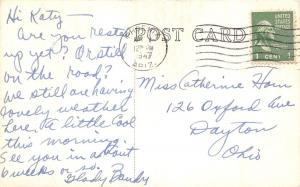 Hi Katy
Are you rested
up yet? Or still
on the road?
We still are having
lovely weather
here. A little cool
this morning.
See you in about
6 weeks or so.
Gladys
POST CARD
12 PM
1947
ARIZ.
UNITED STATES
POSTAGE
1 CENT 1
Miss Catherine Horn
126 Oxford Ave
Dayton
Ohio